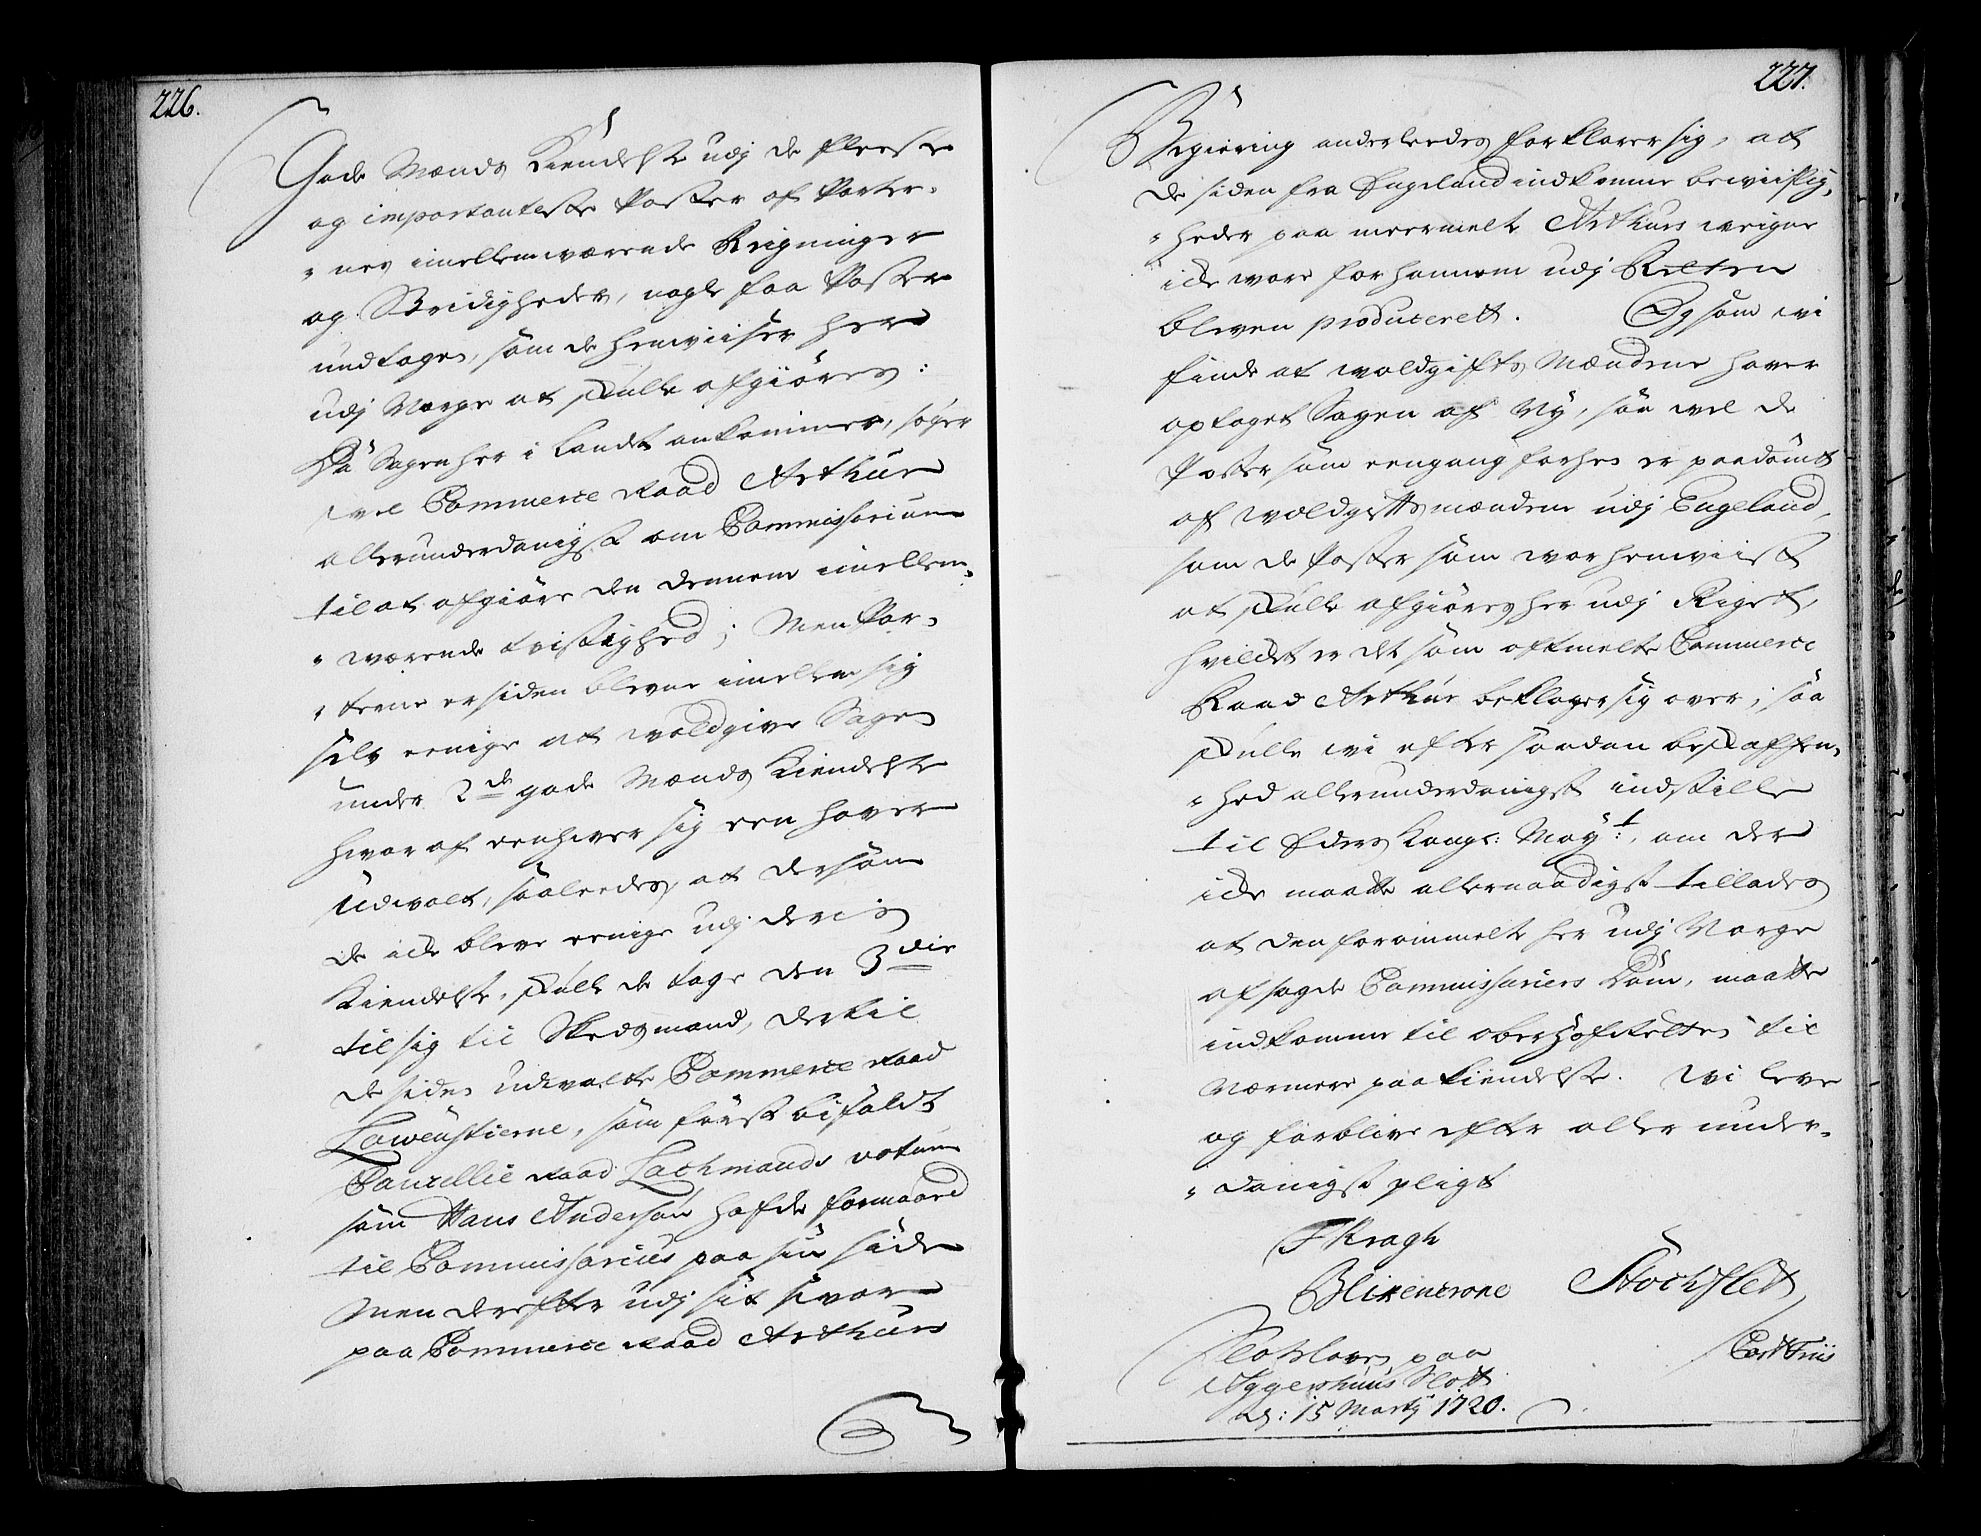 226.
Gode Mænds Kiendelse udj de fleeste
og importanteste Poster af Parter-
"nes imellemværende Regninger
og Stridigheder, nogle faa Poster
undtagen, som de henviiser her
udj Norge at skulle afgiøres:
Da Sagen her i Landet ankommer, søger
vel Commerce Raad Arthur
allerunderdanigst om Commissarium
til at afgiøre den dennem imellem-
"værende tvistighed; Men Par-
"terne er siden blevne imellem sig
selv eenige at voldgive Sagen
under 2de gode Mænds Kiendelse
hvoraf eenhver sig een haver
Udvalt, saaleedes, at dersom
de icke bleve eenige udj deris
Kiendelse, skulle de tage den 3die
til sig til Opmand, dertil
de siden udvalte Commerce Raad
Lowenstierne, som først bifaldt
Cancellie Raad Lachmands votum
som Hans Andersøn hafde formaaed
til Commissarius paa sin side
Men derefter udj sit svar
paa Commerce Raad Arthurs
227.
Begiering anderleedes forklarer sig, at
de siden fra Engeland indkomne beviislig-
"heder paa meermelte Arthurs veigne
icke vare for hannem udj Retten
bleven producerett. Og som vi
finde at voldgifts Mændene haver
optaget Sagen af Ny, saa vel de
Poster som eengang forhen er paadømt
af voldgiftsmændene udj Engeland,
som de Poster som var henviist
at skulle afgiøres her udj Riget,
hvilket er det som oftmelte Commerce
Raad Arthur beklager sig over; saa
skulle vi efter saadan beskaffen-
"hed allerunderdanigst indstille
til Eders Kongl: Mayt:, om der
icke maatte allernaadigst tillades
at den forommelte her udj Norge
afsagde Commissariers Dom, maatte
indkomme til oberhofRetten til
nærmere paakiendelse. Vi leve
og forblive efter allerunder-
"danigst pligt
FKragh
Blixencrone Stochflet
Cort Friis
Slotzloven paa
Aggershuus Slott
d: 15 Martij 1720.